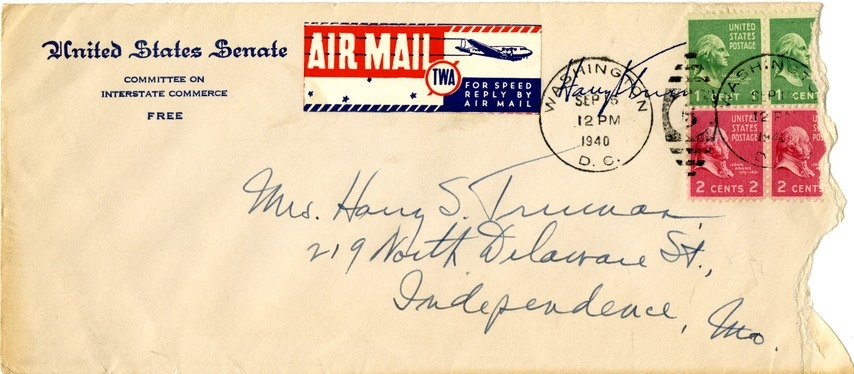 United States Senate
COMMITTEE ON
INTERSTATE COMMERCE
FREE
AIR MAIL
TWA
FOR SPEED
REPLY BY
AIR MAIL
WASHINGTON
SEP 6
12 PM
1940
D. C.
Harry Truman
UNITED
STATES
POSTAGE
1 CENT
1 CENT
WASHINGT
SEP
12 PM
1940
D
UNITED
STATES
POSTAGE
JOHN
ADAMS
2 CENTS 2
2 CENTS
Mrs. Harry S. Truman,
219 North Delaware St.,
Independence, Mo.